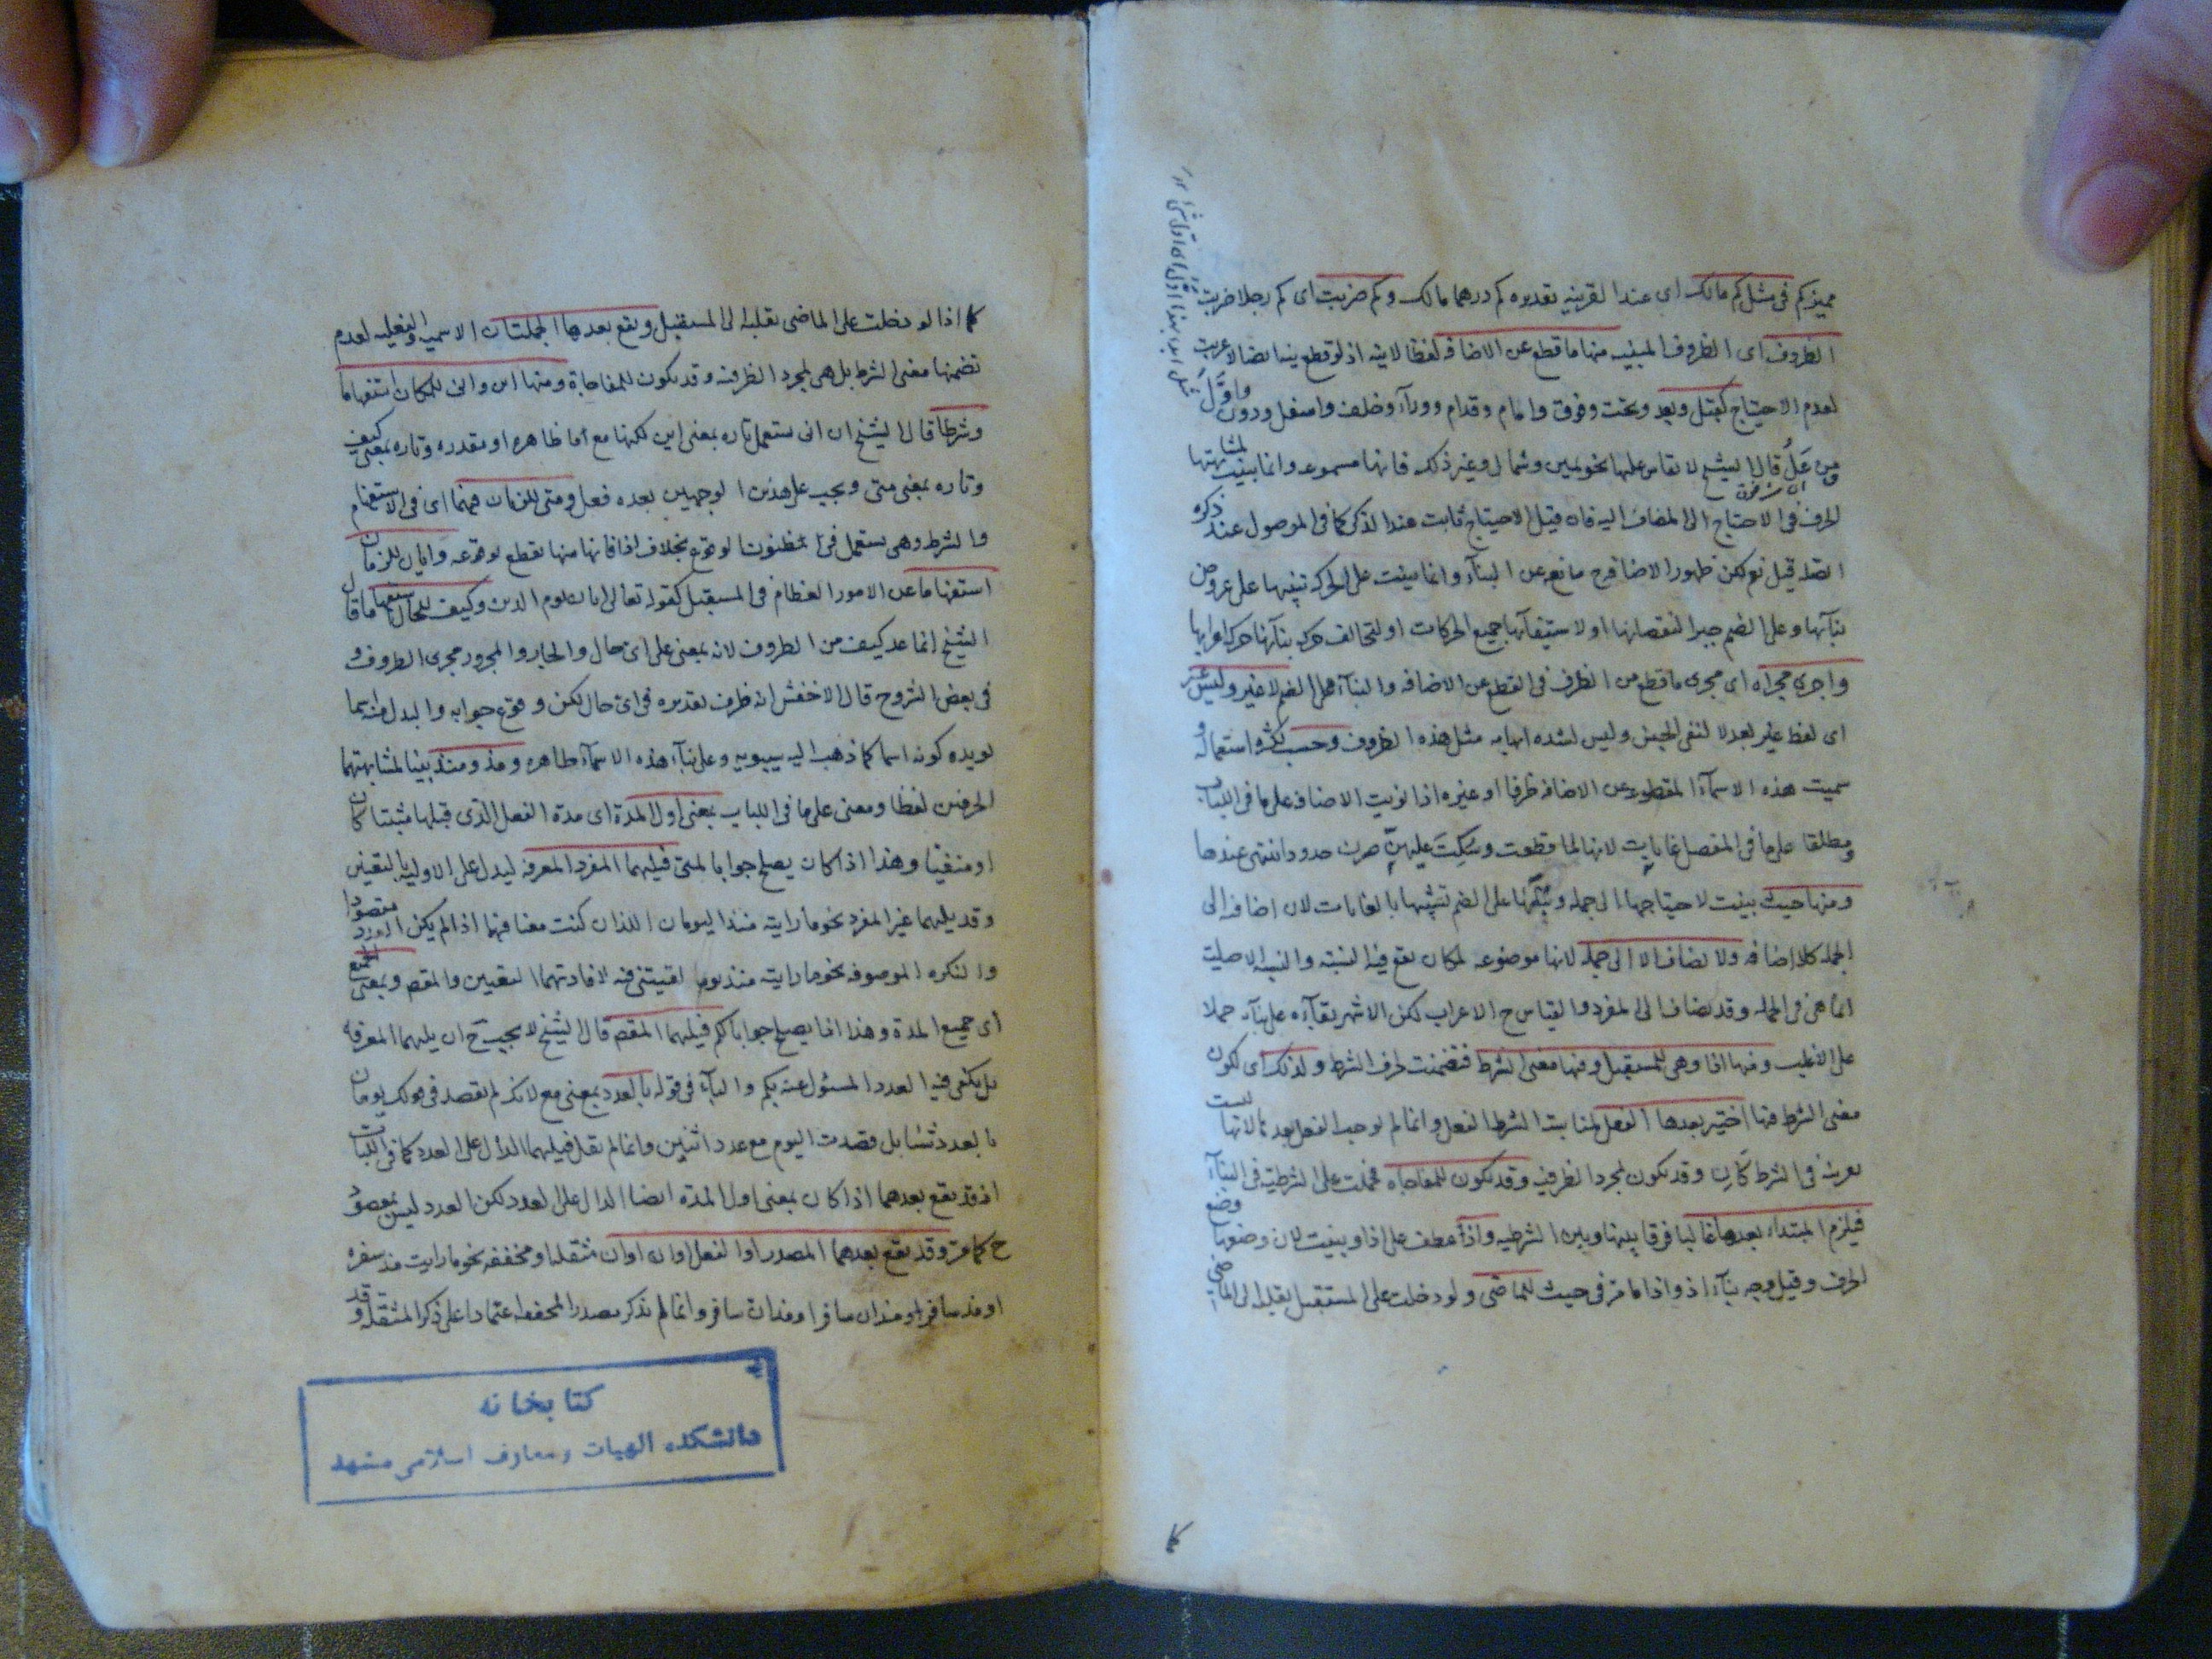 مميزكم فى مثل كم مالك اى عند القرينه تقديره كم درهما مالك وكم ضربت اى كم رجلا ضربت
الظروف اى الظروف المبنيه منها ما قطع عن الاضافه لفظا لا نية اذ لو قطع نية ايضا لاعربت
لعدم الاحتياج كقبل وبعد وتحت وفوق وامام وقدام ووراء وخلف واسفل ودون واوّل
ومن عَلُ قال الشيخ لا يقاس عليها نحو يمين وشمال وغير ذلك فانها مسموعه وانما بنيت لمشابهتها
الحرف فى الاحتياج الى المضاف اليه فان قيل الاحتياج ثابت عند الذكر كما فى الموصول عند ذكره
الصله قيل نعم لكن ظهور الاضافه ح مانع عن البناء وانما بنيت على الحركه تنبيها على عروض
بنائها وعلى الضم جبرا لنقصانها او لاستيفائها جميع الحركات او لتخالف حركه بنائها حركه اعرابها
واجرى مجراه اى مجرى ما قطع من الظرف فى القطع عن الاضافه والبناء على الضم لا غير وليس غير
اى لفظ غير بعد لا لنفى الجنس وليس لشده ابهامه مثل هذه الظروف وحسب لكثره استعماله و
سميت هذه الاسماء المقطوعه عن الاضافه ظرفا او غيره اذا نويت الاضافه على ما فى اللباب
ومطلقا على ما فى المفصل غايات لانها لما قطعت وسُكِتَ عليهنّ صرن حدودا ينتهى عندها
ومنها حيث بنيت لاحتياجها الى جمله وبنائها على الضم تشبيها بالغايات لان اضافه الى
الجمله كلا اضافه ولا يضاف الا الى جمله لانها موضوعه لمكان يقع فيه النسبه والنسبه الاصليه
انما هى فى الجمله وقد يضاف الى المفرد والقياس ح الاعراب لكن الاشهر بقاءه على بنائه حملا
على الاغلب ومنها اذا وهى للمستقبل وفيها معنى الشرط فتضمنت حرف الشرط ولذلك اى لكون
معنى الشرط فيها اختير بعدها الفعل لمناسبة الشرط الفعل وانما لم يوجب الفعل بعدها لانها ليست
بعريقه فى الشرط كَاِن وقد يكون لمجرد الظرفيه وقد يكون للمفاجاه فحملت على الشرطيه فى البناء
فيلزم المبتداء بعدها غالبا فرقا بينها وبين الشرطيه واذ عطف على اذا وبنيت لان وضعها وضع
الحرف وقيل وجه بناء اذ واذا ما مر فى حيث للماضى ولو دخلت على المستقبل يقلبه الى الماضى
كما
كما اذا لو دخلت على الماضى تقلبه الى المستقبل ويقع بعدها الجملتان الاسميه والفعليه لعدم
تضمنها معنى الشرط بل هى لمجرد الظرفيه وقد يكون للمفاجاة ومنها اين وانى للمكان استفهاما
وشرطا قال الشيخ ان انى يستعمل تاره بمعنى اين لكنها مع اما ظاهره او مقدره وتاره بمعنى كيف
وتاره بمعنى متى ويجب على هذين الوجهين بعده فعل ومتى للزمان فيهما اى فى الاستفهام
والشرط وهى يستعمل فى مظنون الوقوع بخلاف اذا فانها منها بقطع بوقوعه وايان للزمان
استفهاما عن الامور العظام فى المستقبل كقوله تعالى ايان يوم الدين وكيف للحال استفهاما قال
الشيخ انما عد كيف من الظروف لانه بمعنى على اى حال والجار والمجرور مجرى الظروف و
فى بعض الشروح قال الاخفش انه ظرف تقديره فى اى حال لكن وقوع جوابه والبدل منه اسما
يويده كونه اسما كما ذهب اليه سيبويه وعله بناء هذه الاسماء ظاهره ومذ ومنذ بنيا لمشابهتهما
الحرفين لفظا ومعنى على ما فى اللباب بمعنى اول المدة اى مدة الفعل الذى قبلها مثبتا كان
او منفيّا وهذا اذا كان يصلح جوابا لمتى فيليهما المفرد المعرفه ليدل على الاوليه بالتعيين
وقد يليهما غير المفرد نحو ما رايته منذ اليومان اللذان كنت معنا فيهما اذا لم يكن العدد مقصودا
والنكره الموصوفه نحو ما رايته منذ يوم لقيتنى فيه لافادتهما التعيين والمقصود بمعنى الجميع
اى جميع المدة وهذا اذا يصلح جوابا لكم فيليهما المقصود قال الشيخ لا يجب ح ان يليهما المعرفه
بل يكفى فيه العدد المسئول عنه بكم والباء فى قوله بالعدد بمعنى مع لانك لم تقصد فى قولك يومان
بالعدد شيئا بل قصدت اليوم مع عدد اثنين وانما لم يقل فيليهما الدال على العدد كما فى اللباب
اذ قد يقع بعدهما اذا كان بمعنى اول المدة ايضا الدال على العدد لكن العدد ليس بمقصود
ح كما مر وقد يقع بعدهما المصدر او الفعل او ان او ان مثقله او مخففه نحو ما رايت مذ سفره
او مذ سافر او منذ ان سافر او مذ ان سافر وانما لم يذكر مصدر المخففه اعتمادا على ذكر المثقله وقد
كتابخانه
دانشكده الهيات ومعارف اسلامى مشهد